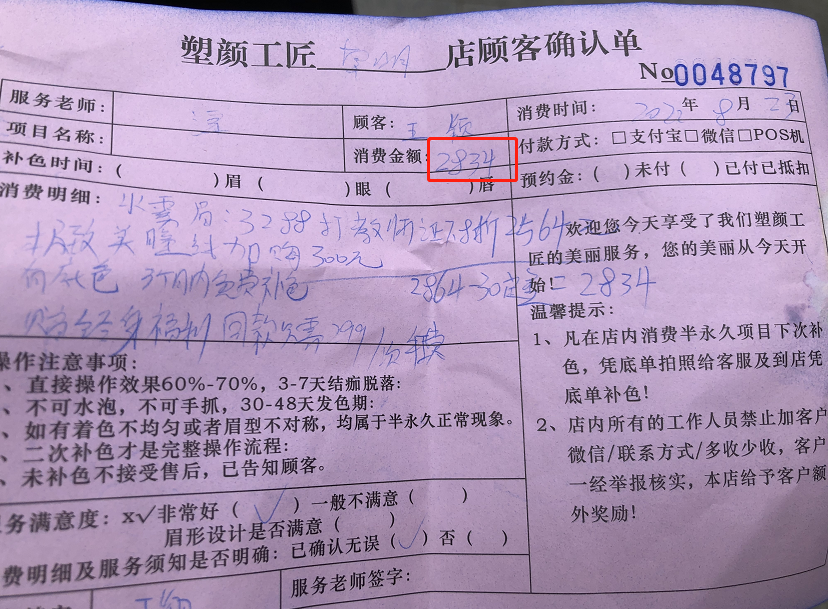 塑颜工匠 店顾客确认单
No 0048797
服务老师: 顾客: 王颖 消费时间: 2022年8月23日
项目名称: 消费金额: 2834 付款方式: □支付宝□微信□POS机
补色时间: ( )眉 ( )眼 ( )唇 预约金: ( )未付 ( )已付已抵扣
消费明细: 水雲眉: 3288打教师证8折2564元
极致美瞳线加购300元
有底色 3个月内免费补色 2864-30定金=2834
赠终身福利 同款只需299/次
欢迎您今天享受了我们塑颜工
匠的美丽服务，您的美丽从今天开
始!
温馨提示:
1、凡在店内消费半永久项目下次补
色，凭底单拍照给客服及到店凭
底单补色!
2、店内所有的工作人员禁止加客户
微信/联系方式/多收少收，客户
一经举报核实，本店给予客户额
外奖励!
操作注意事项:
、直接操作效果60%-70%，3-7天结痂脱落:
、不可水泡，不可手抓，30-48天发色期:
、如有着色不均匀或者眉型不对称，均属于半永久正常现象。
、二次补色才是完整操作流程:
、未补色不接受售后，已告知顾客。
务满意度: x√非常好 ( √ ) 一般不满意 ( )
眉形设计是否满意 ( )
费明细及服务须知是否明确: 已确认无误 ( √ ) 否 ( )
服务老师签字: